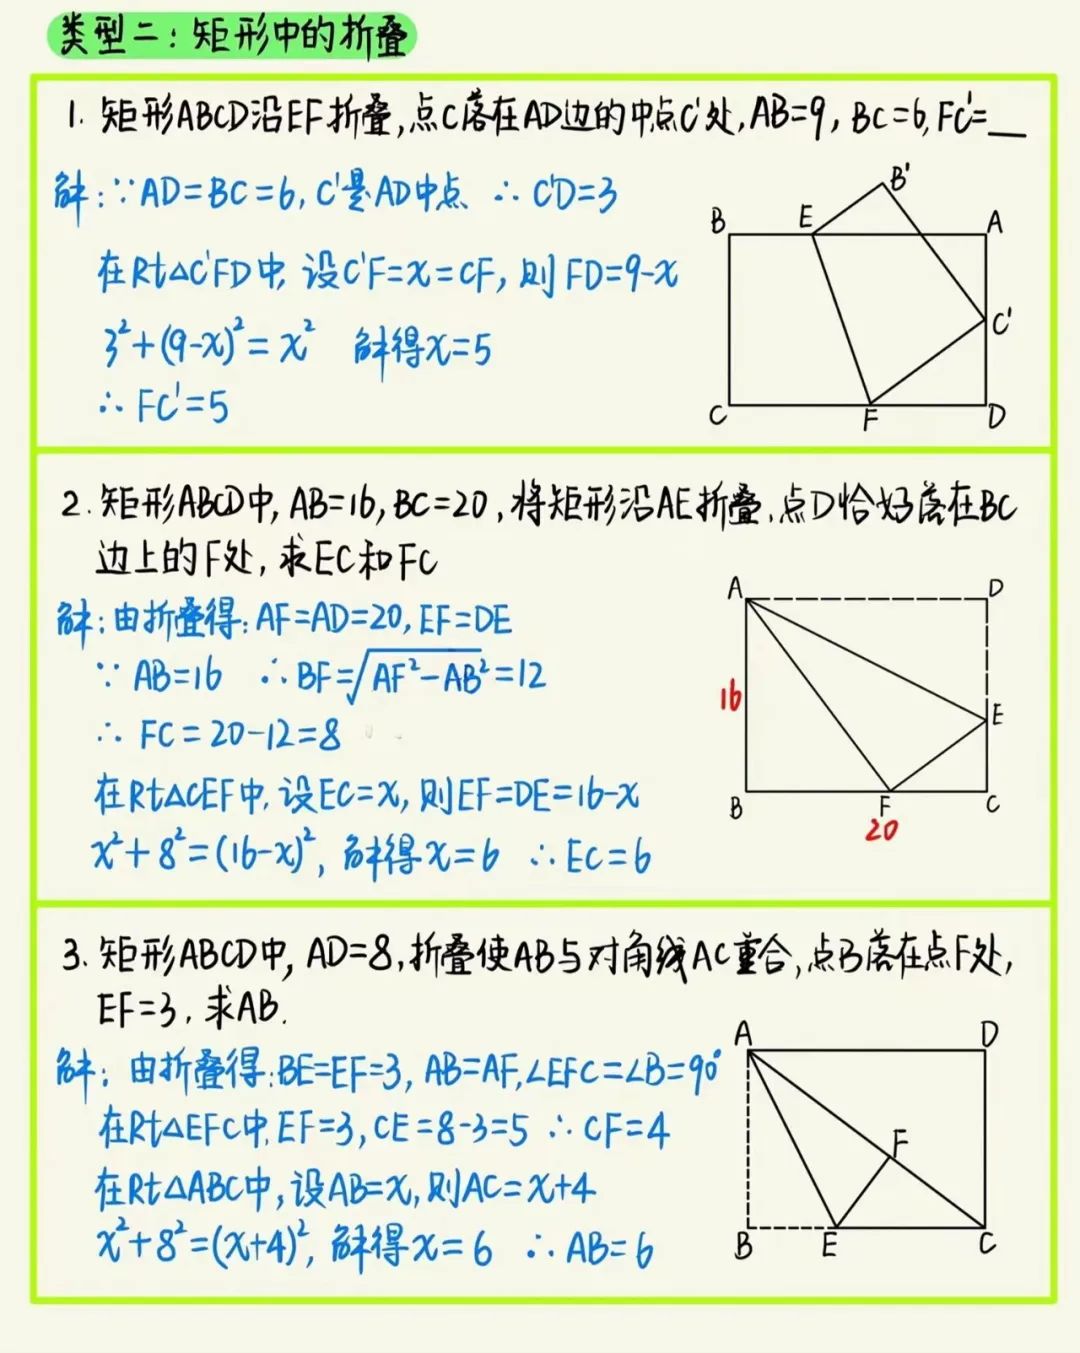 类型二：矩形中的折叠
1. 矩形ABCD沿EF折叠,点C落在AD边的中点C'处,AB=9, BC=6, FC'=__
解：∵AD=BC=6, C'是AD中点 ∴ C'D=3
在Rt△C'FD中, 设C'F=x=CF, 则FD=9-x
3²+(9-x)²=x² 解得x=5
∴ FC'=5
B'
B E A
C'
C F D
2. 矩形ABCD中, AB=16, BC=20, 将矩形沿AE折叠,点D恰好落在BC
边上的F处, 求EC和FC
解：由折叠得: AF=AD=20, EF=DE
∵ AB=16 ∴ BF=√(AF²-AB²)=12
∴ FC=20-12=8
在Rt△CEF中, 设EC=x, 则EF=DE=16-x
x²+8²=(16-x)², 解得x=6 ∴ EC=6
A D
16
E
B F C
20
3. 矩形ABCD中, AD=8, 折叠使AB与对角线AC重合, 点B落在点F处,
EF=3, 求AB.
解：由折叠得: BE=EF=3, AB=AF, ∠EFC=∠B=90°
在Rt△EFC中, EF=3, CE=8-3=5 ∴ CF=4
在Rt△ABC中, 设AB=x, 则AC=x+4
x²+8²=(x+4)², 解得x=6 ∴ AB=6
A D
F
B E C